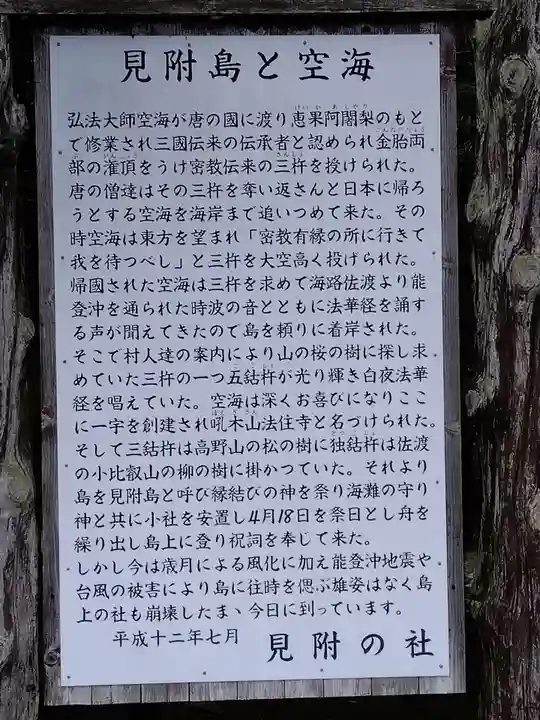 見附島と空海
弘法大師空海が唐の國に渡り恵果阿闍梨のもと
で修業され三國伝来の伝承者と認められ金胎両
部の潅頂をうけ密教伝来の三杵を授けられた。
唐の僧達はその三杵を奪い返さんと日本に帰ろ
うとする空海を海岸まで追いつめて来た。その
時空海は東方を望まれ「密教有縁の所に行きて
我を待つべし」と三杵を大空高く投げられた。
帰國された空海は三杵を求めて海路佐渡より能
登沖を通られた時波の音とともに法華経を誦す
る声が聞えてきたので島を頼りに着岸された。
そこで村人達の案内により山の桜の樹に探し求
めていた三杵の一つ五鈷杵が光り輝き白夜法華
経を唱えていた。空海は深くお喜びになりここ
に一宇を創建され吼木山法住寺と名づけられた。
そして三鈷杵は高野山の松の樹に独鈷杵は佐渡
の小比叡山の柳の樹に掛かつていた。それより
島を見附島と呼び縁結びの神を祭り海灘の守り
神と共に小社を安置し4月18日を祭日とし舟を
繰り出し島上に登り祝詞を奉じて来た。
しかし今は歳月による風化に加え能登沖地震や
台風の被害により島に往時を偲ぶ雄姿はなく島
上の社も崩壊したまゝ今日に到っています。
平成十二年七月 見附の社